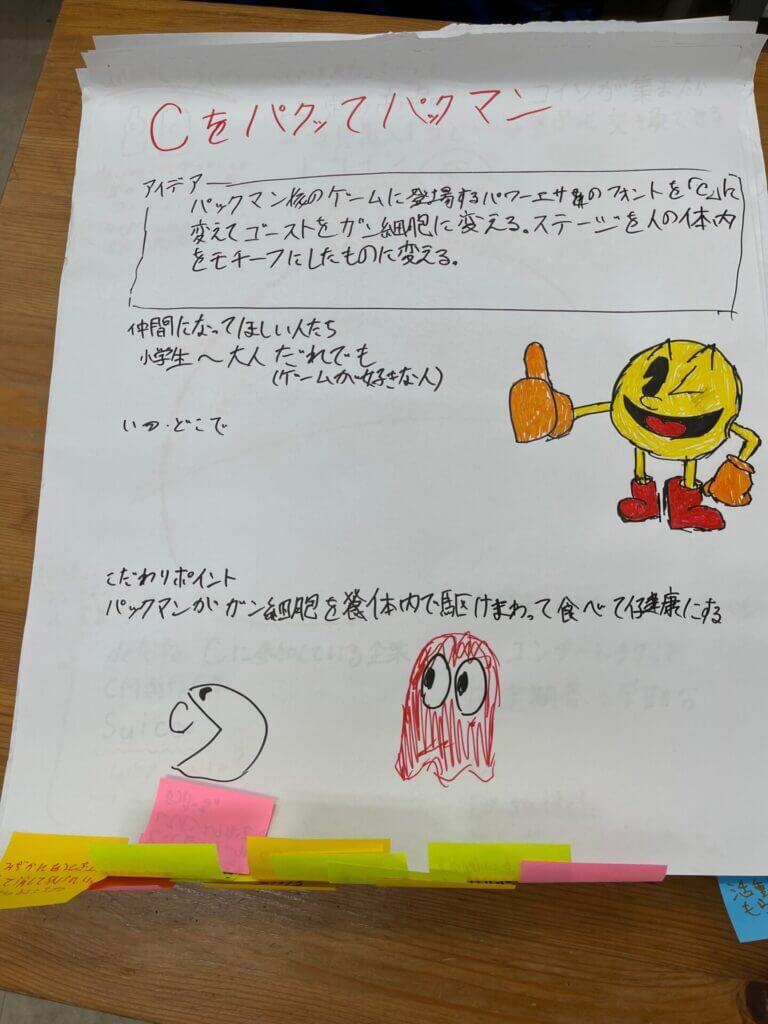 Cをパクッてパックマン
アイデア
パックマン後のゲームに登場するパワーエサのフォントを「C」に
変えてゴーストをガン細胞に変える。ステージを人の体内
をモチーフにしたものに変える。
仲間になってほしい人たち
小学生〜大人 だれでも
(ゲームが好きな人)
いつ・どこで
こだわりポイント
パックマンがガン細胞を体内で駆けまわって食べて健康にする
C
Suica
活動